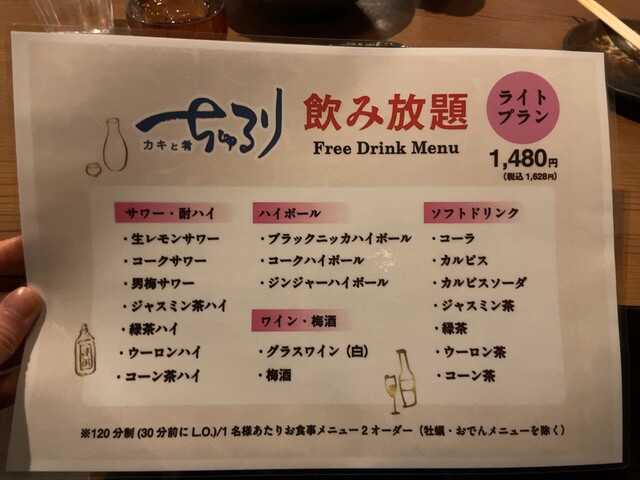 ちゅるり
カキと肴
飲み放題
Free Drink Menu
ライト
プラン
1,480円
(税込 1,628円)
サワー・酎ハイ
・生レモンサワー
・コークサワー
・男梅サワー
・ジャスミン茶ハイ
・緑茶ハイ
・ウーロンハイ
・コーン茶ハイ
ハイボール
・ブラックニッカハイボール
・コークハイボール
・ジンジャーハイボール
ワイン・梅酒
・グラスワイン（白）
・梅酒
ソフトドリンク
・コーラ
・カルピス
・カルピスソーダ
・ジャスミン茶
・緑茶
・ウーロン茶
・コーン茶
※120分制 (30分前にL.O.)/1名様あたりお食事メニュー2オーダー（牡蠣・おでんメニューを除く）